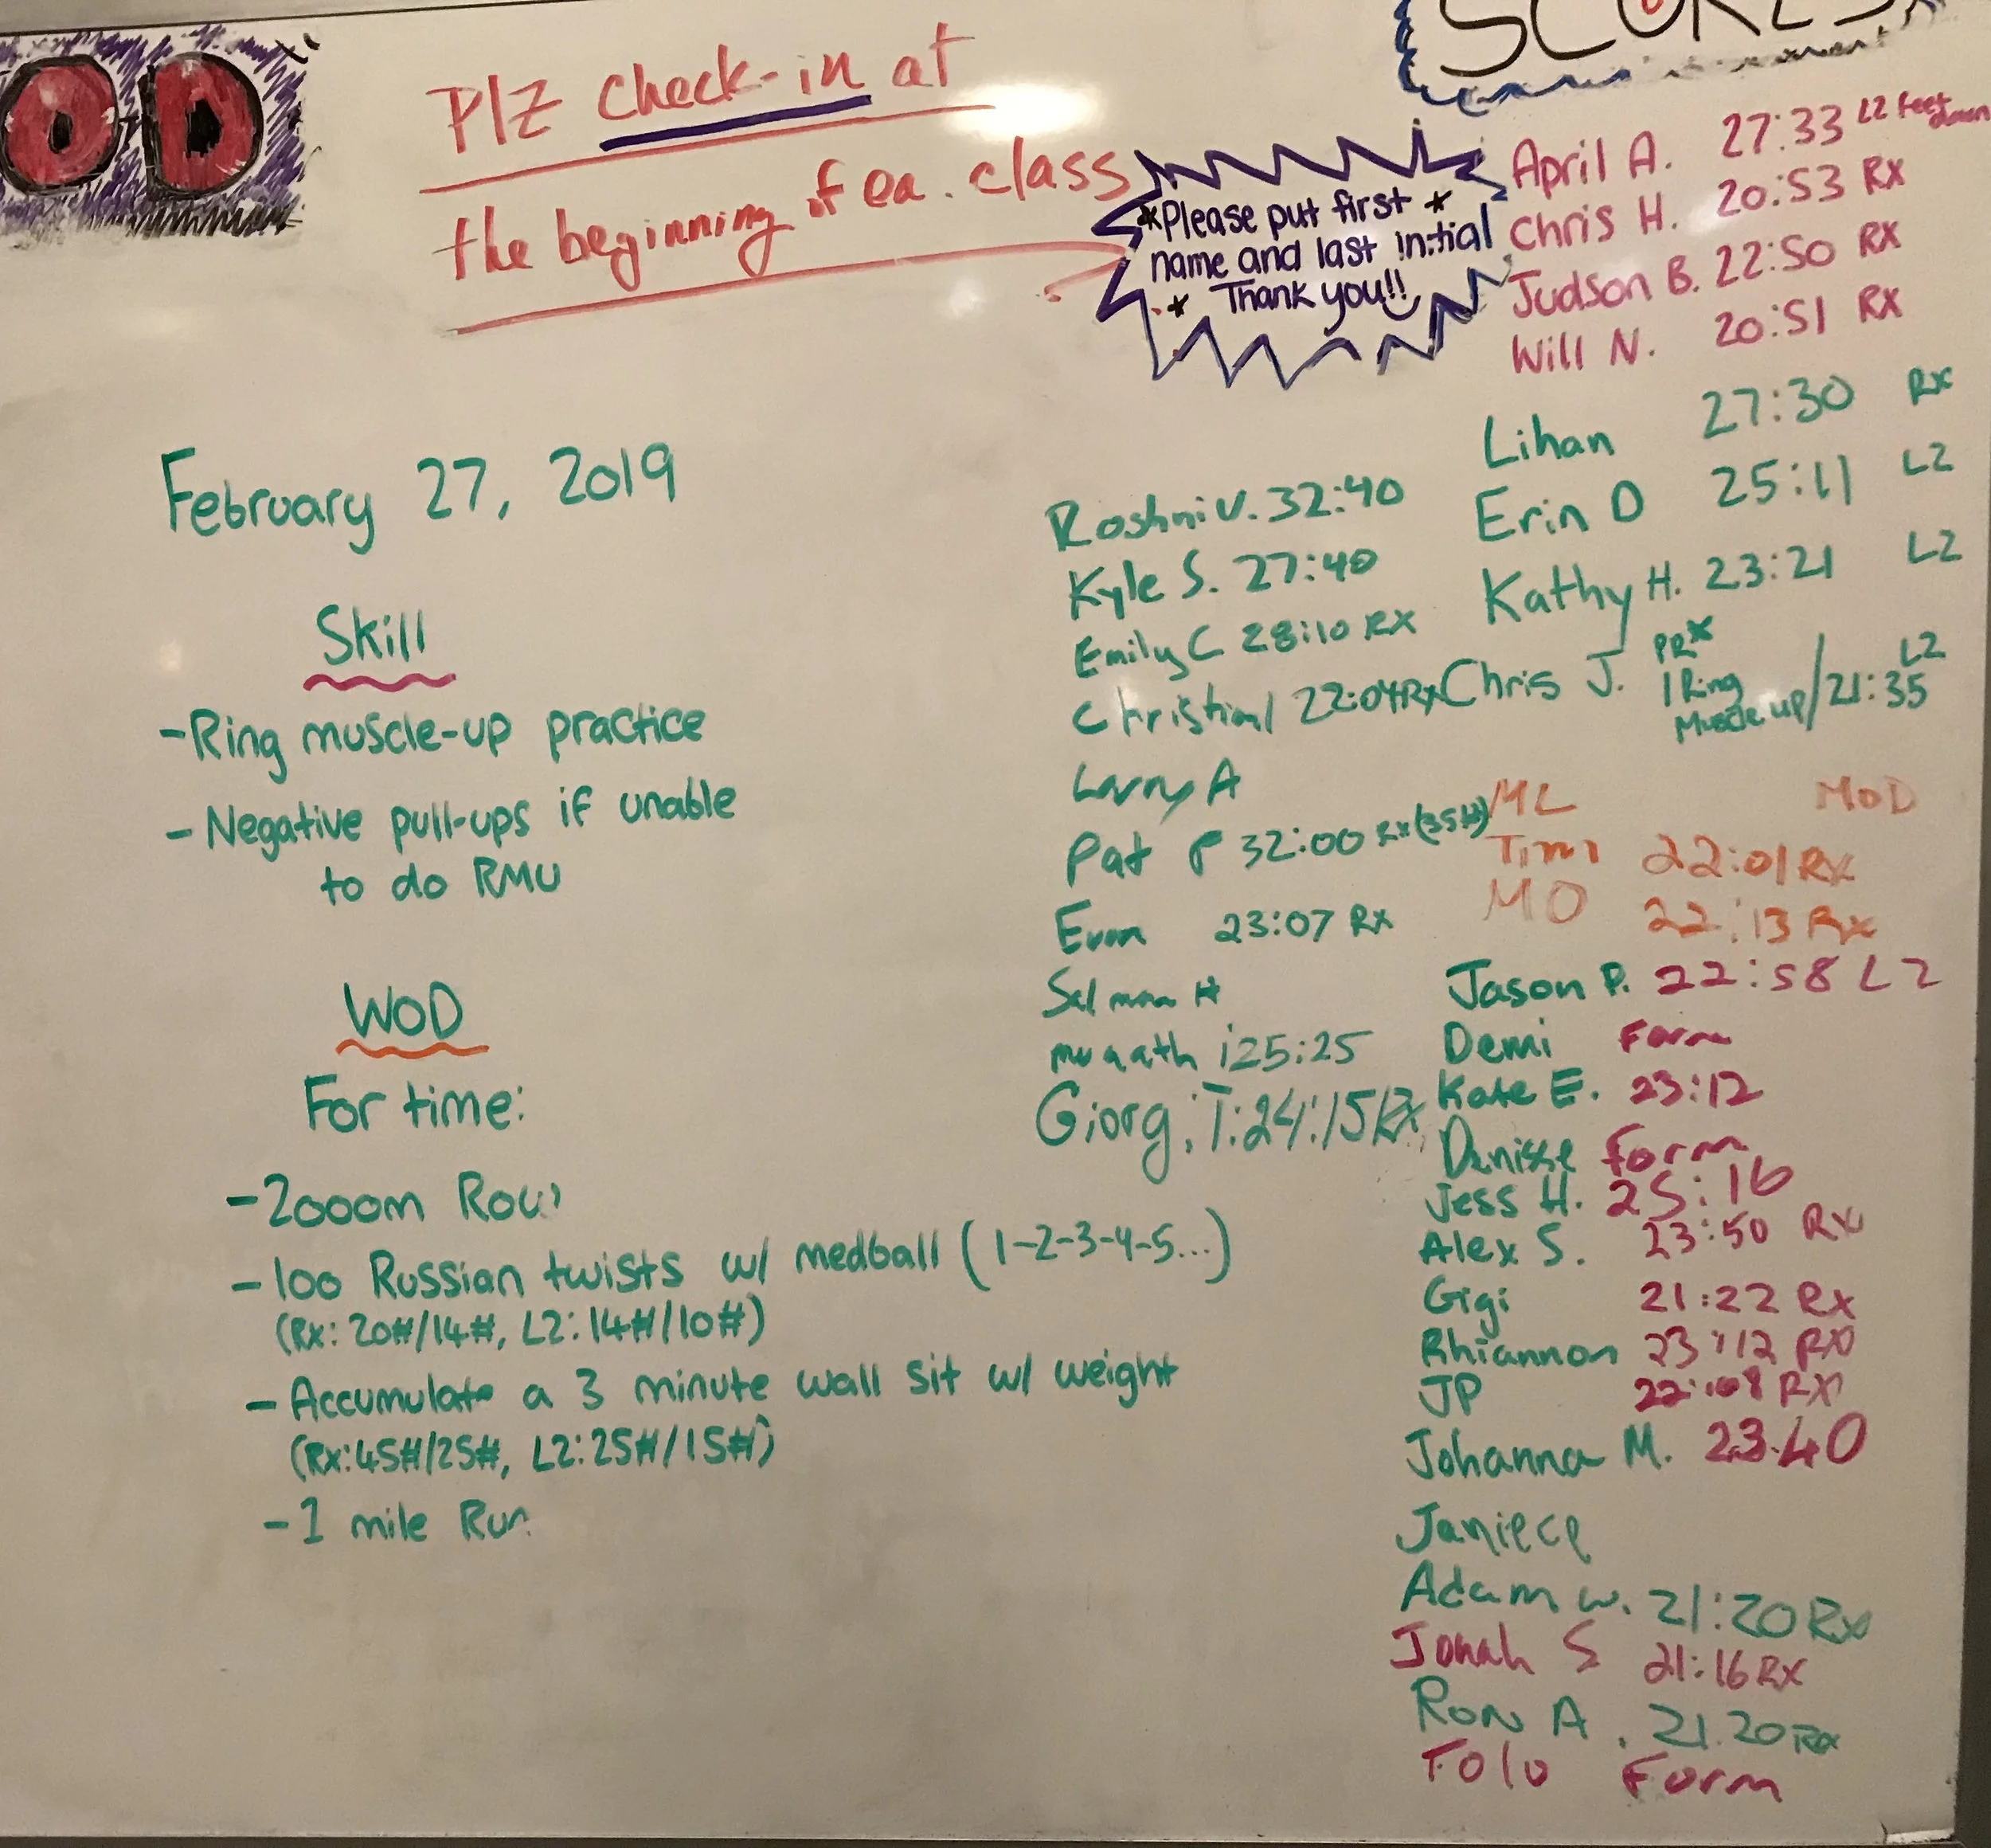 OD
SCORES
Plz check-in at
the beginning of ea. class
*Please put first *
name and last initial
* Thank you!!
April A. 27:33 L2 feet down
Chris H. 20:53 RX
Judson B. 22:50 RX
Will N. 20:51 RX
February 27, 2019
Skill
-Ring muscle-up practice
- Negative pull-ups if unable
to do RMU
WOD
For time:
-2000m Row
-100 Russian twists w/ medball (1-2-3-4-5...)
(Rx: 20#/14#, L2: 14#/10#)
- Accumulate a 3 minute wall sit w/ weight
(Rx: 45#/25#, L2: 25#/15#)
-1 mile Run
Roshni V. 32:40
Kyle S. 27:40
Emily C 28:10 RX
22:04 Rx
Larry A
Pat P 32:00 Rx (35#)
Evan 23:07 Rx
Salman H
muaath i 25:25
Giorgi T: 24:15 Rx
Lihan 27:30 Rx
Erin D 25:11 L2
Kathy H. 23:21 L2
Chris J. PR* 1 Ring Muscle up / 21:35 L2
ML MOD
Timi 22:01 RX
MO 22:13 Rx
Jason P. 22:58 L2
Demi Form
Kate E. 23:12
Denise Form
Jess H. 25:16
Alex S. 23:50 Rx
Gigi 21:22 Rx
Rhiannon 23:12 RX
JP 22:08 RX
Johanna M. 23:40
Janiece
Adam W. 21:20 Rx
Jonah S 21:16 RX
Ron A. 21.20 Rx
Folo Form